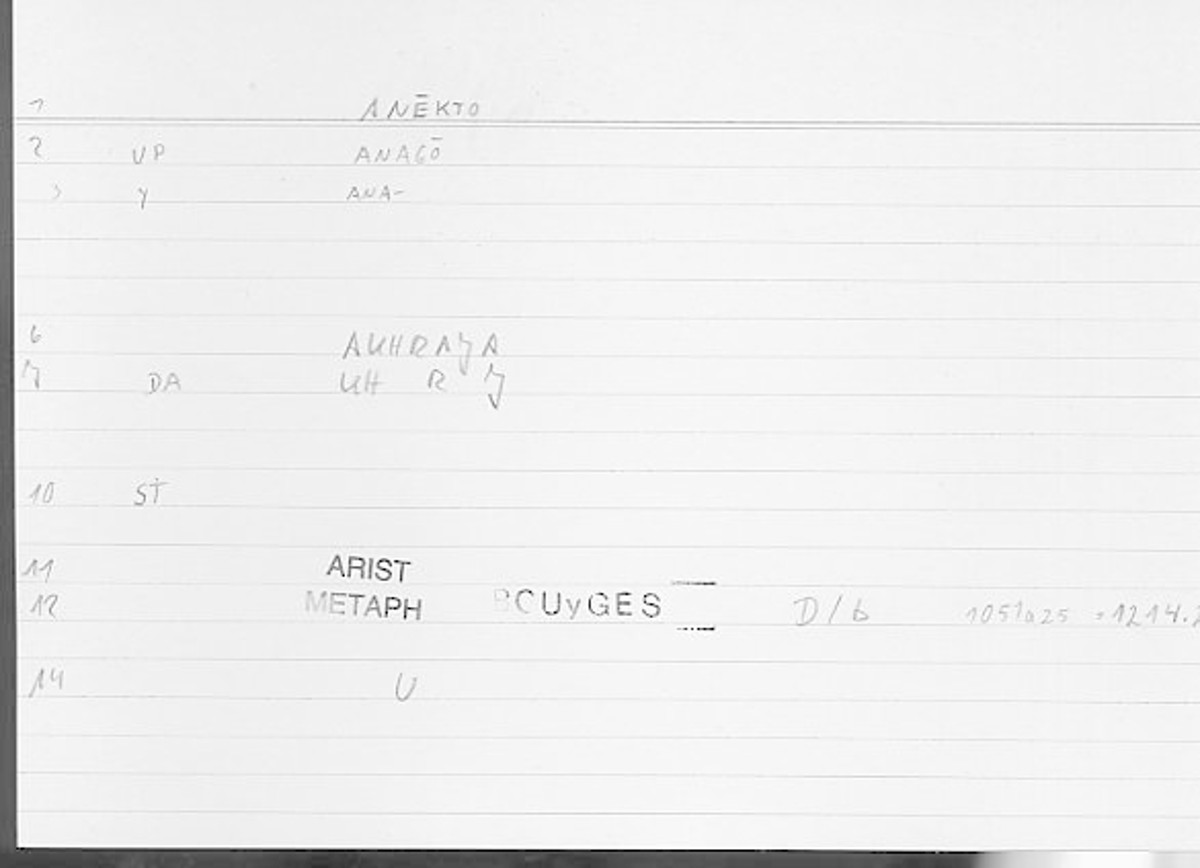 1 ANĒKTO
2 VP ANAGŌ
3 Y ANA-
6 AUHRAJA
7 DA UH R J
10 ST
11 ARIST
12 METAPH BOUyGES D/b 1051a25 =1214.2
14 U